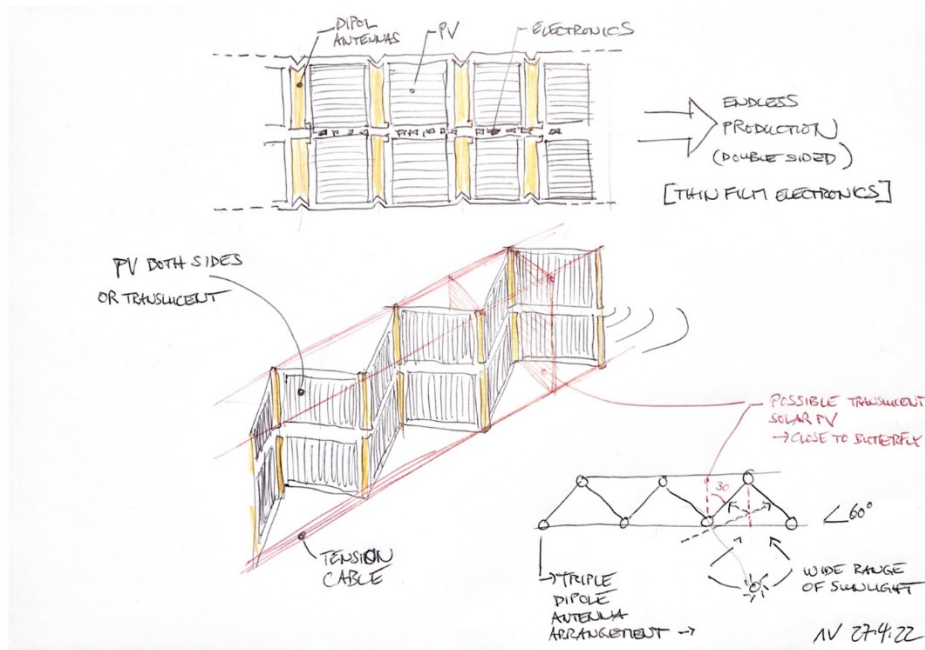 DIPOL
ANTENNAS
PV
ELECTRONICS
ENDLESS
PRODUCTION
(DOUBLE SIDED)
[THIN FILM ELECTRONICS]
PV BOTH SIDES
OR TRANSLUCENT
POSSIBLE TRANSLUCENT
SOLAR PV
→ CLOSE TO BUTERFLY
30
∠60°
TENSION
CABLE
→ TRIPLE
DIPOLE
ANTENNA
ARRANGEMENT →
WIDE RANGE
OF SUNLIGHT
NV 27.4.22